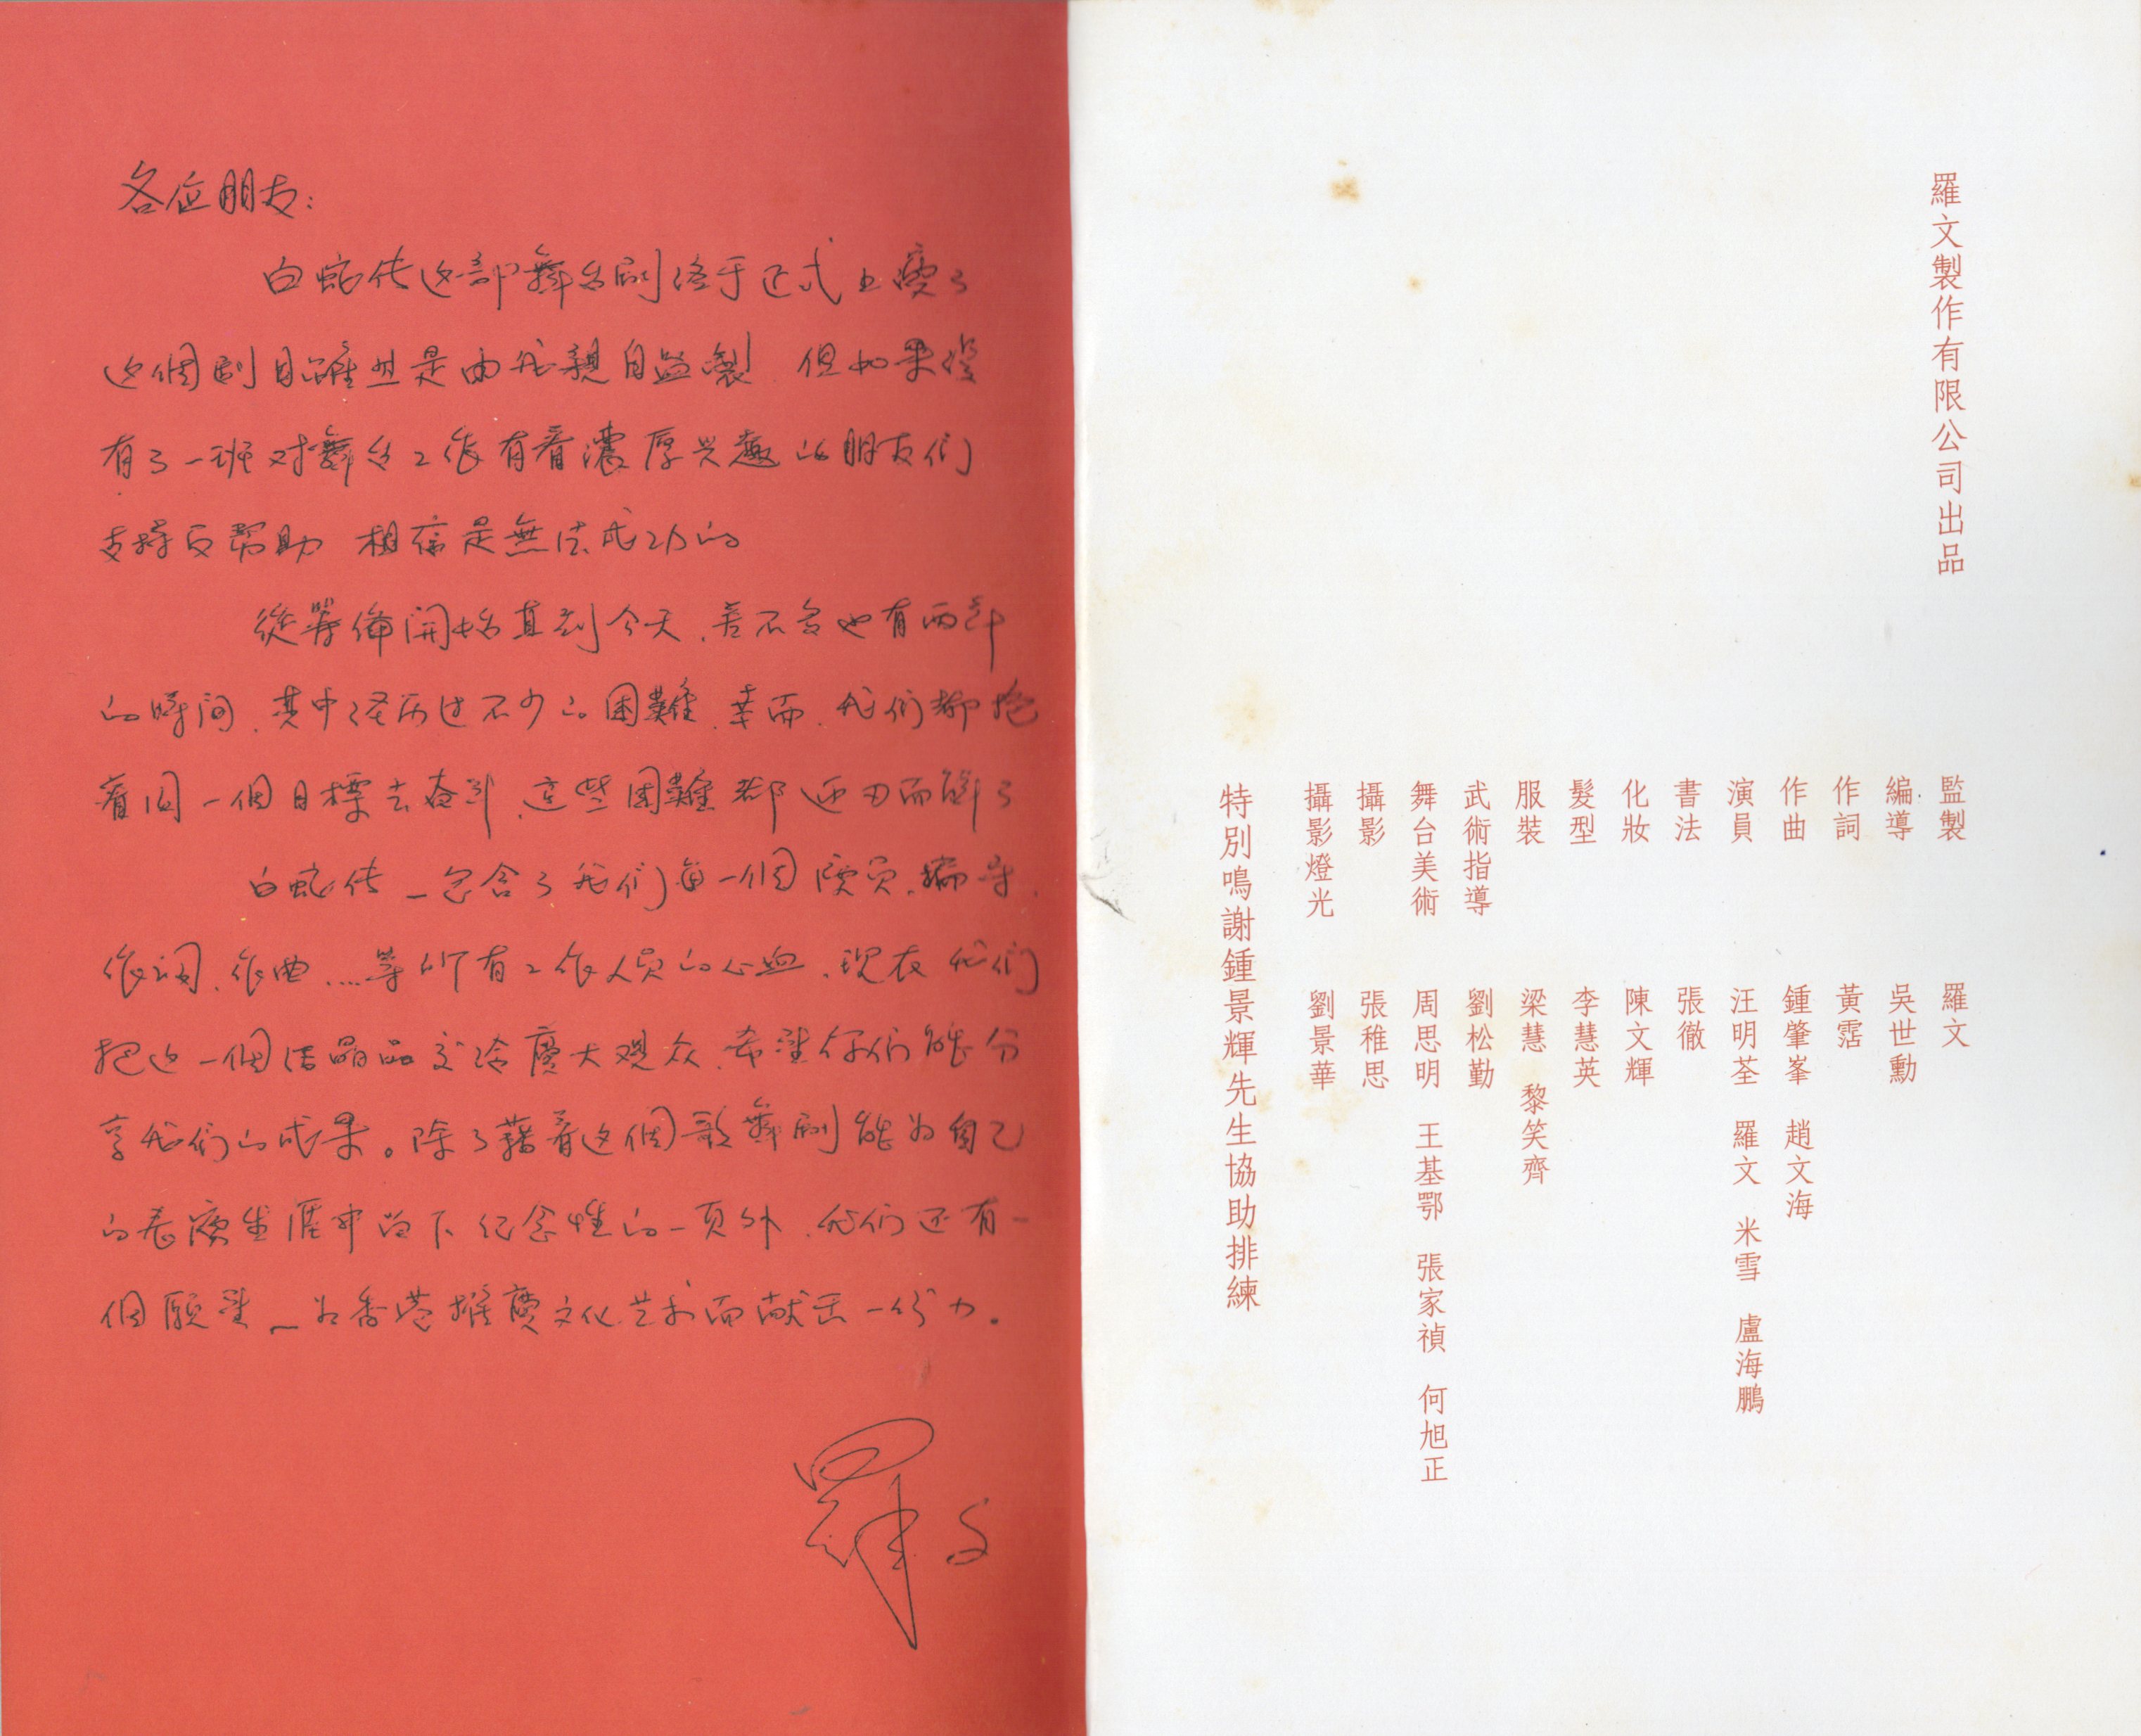 各位朋友:
白蛇传这部舞台剧终于正式上演了
这個剧目雖然是由我親自監製 但如果沒
有了一班对舞台工作有着濃厚兴趣的朋友们
支持及幫助 相信是無法成功的
從籌備開始直到今天,差不多也有两年
的時间,其中经历过不少的困難,幸而,我们都抱
着同一個目標去奋斗,這些困難都迎刃而解了
白蛇传—包含了我们每一個演员,编导,
作词,作曲....等所有工作人員的心血,现在我们
把这一個结晶品交给廣大观众,希望你们能分
享我们的成果。除了藉着这個歌舞剧能为自己
的表演生涯中留下纪念性的一頁外,我们还有一
個願望—为香港推廣文化艺术而献出一份力。
羅文
羅文製作有限公司出品
監製 羅文
編導 吳世勳
作詞 黃霑
作曲 鍾肇峯 趙文海
演員 汪明荃 羅文 米雪 盧海鵬
書法 張徹
化妝 陳文輝
髮型 李慧英
服裝 梁慧 黎笑齊
武術指導 劉松勤
舞台美術 周思明 王基鄂 張家禎 何旭正
攝影 張稚思
攝影燈光 劉景華
特別鳴謝鍾景輝先生協助排練